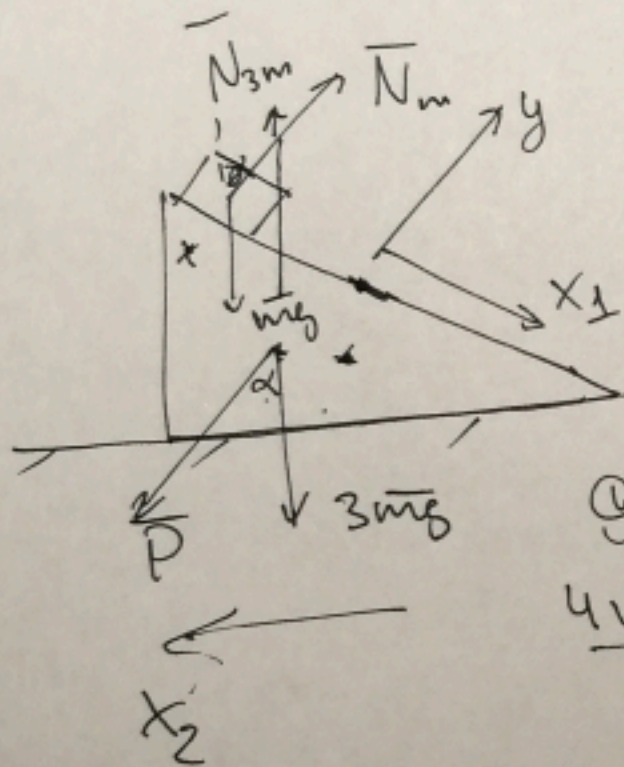 N̅₃ₘ
N̅ₘ
y
x
X₁
m̅g̅
α
P̅
3m̅g̅
X₂